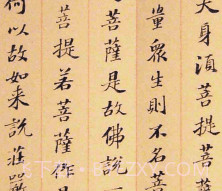 大身須菩提菩薩
量眾生則不名菩
菩薩是故佛說一
菩提若菩薩作是
何以故如来說莊嚴